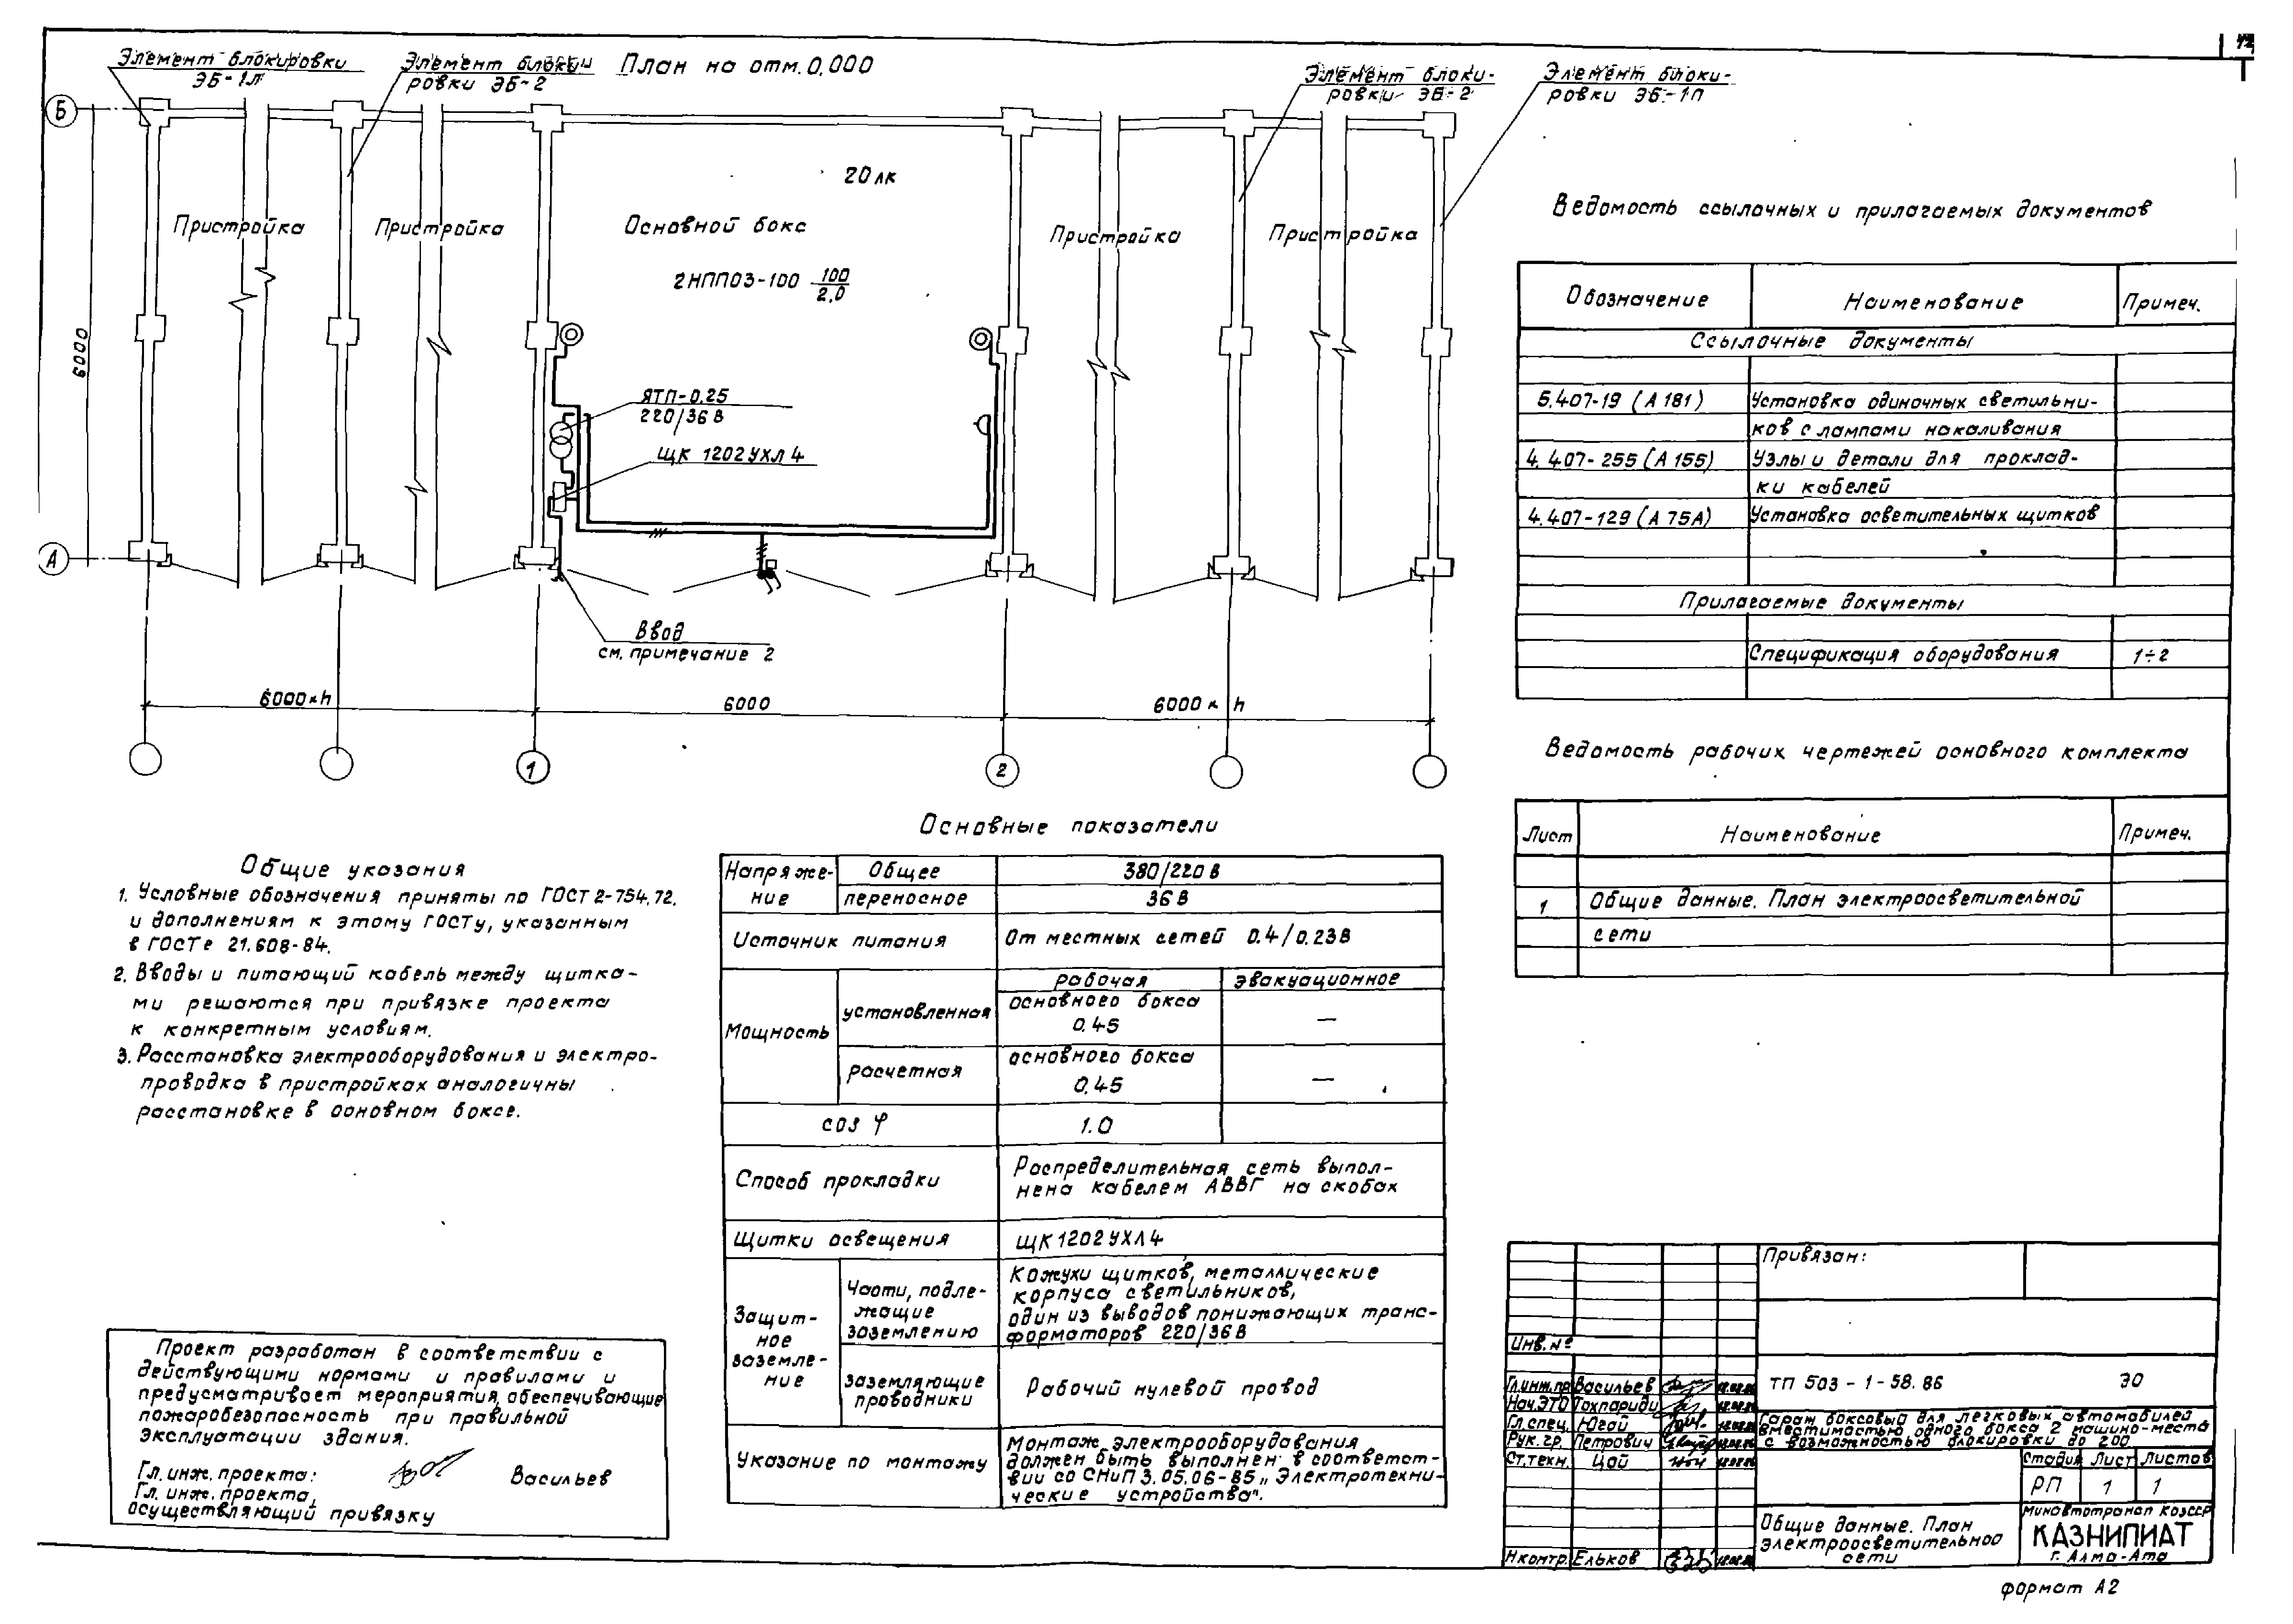 12
Элемент блокировки
ЭБ-1л
Элемент блоки
ровки ЭБ-2
План на отм. 0,000
Элемент блоки-
ровки ЭБ-2
Элемент блоки-
ровки ЭБ-1п
Б
А
6000
20 лк
Пристройка
Пристройка
Основной бокс
Пристройка
Пристройка
2НПП03-100 100/2,0
ЯТП-0,25
220/36 В
ЩК 1202 УХЛ 4
Ввод
см. примечание 2
6000×n
6000
6000×n
1
2
Ведомость ссылочных и прилагаемых документов
Обозначение Наименование Примеч.
Ссылочные документы
5.407-19 (А 181) Установка одиночных светильни-
ков с лампами накаливания
4.407-255 (А 155) Узлы и детали для проклад-
ки кабелей
4.407-129 (А 75А) Установка осветительных щитков
Прилагаемые документы
Спецификация оборудования 1÷2
Ведомость рабочих чертежей основного комплекта
Лист Наименование Примеч.
1 Общие данные. План электроосветительной
сети
Общие указания
1. Условные обозначения приняты по ГОСТ 2-754.72.
и дополнениям к этому ГОСТу, указанным
в ГОСТе 21.608-84.
2. Вводы и питающий кабель между щитка-
ми решаются при привязке проекта
к конкретным условиям.
3. Расстановка электрооборудования и электро-
проводка в пристройках аналогичны
расстановке в основном боксе.
Основные показатели
Напряже-
ние
Общее 380/220 В
переносное 36 В
Источник питания От местных сетей 0.4/0.23В
Мощность
рабочая эвакуационное
установленная
основного бокса
0.45 —
расчетная
основного бокса
0.45 —
cos φ 1.0
Способ прокладки
Распределительная сеть выпол-
нена кабелем АВВГ на скобах
Щитки освещения ЩК 1202 УХЛ4
Защит-
ное
заземле-
ние
Части, подле-
жащие
заземлению
Кожухи щитков, металлические
корпуса светильников,
один из выводов понижающих транс-
форматоров 220/36В
заземляющие
проводники
Рабочий нулевой провод
Указание по монтажу
Монтаж электрооборудавания
должен быть выполнен в соответст-
вии со СНиП 3.05.06-85 „Электротехни-
ческие устройства".
Проект разработан в соответствии с
действующими нормами и правилами и
предусматривает мероприятия, обеспечивающие
пожаробезопасность при правильной
эксплуатации здания.
Гл. инж. проекта: Васильев
Гл. инж. проекта,
осуществляющий привязку
Привязан:
Инв. №
Гл.инж.пр Васильев
Нач.ЭТО Тохпариди
Гл.спец. Югай
Рук. гр. Петрович
Ст.техн. Цой
Н контр. Ельков
ТП 503-1-58.86 ЭО
Гараж боксовый для легковых автомобилей
вместимостью одного бокса 2 машино-места
с возможностью блокировки до 200
Стадия Лист Листов
РП 1 1
Общие данные. План
электроосветительной
сети
Минавтотранс КазССР
КАЗНИПИАТ
г. Алма-Ата
формат А2